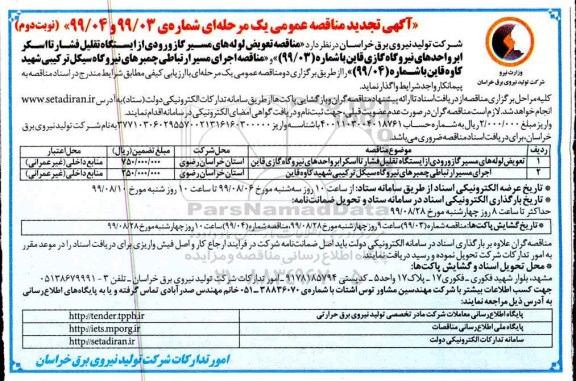 «آگهی تجدید مناقصه عمومی یک مرحله‌ای شماره‌ی ۹۹/۰۳ و ۹۹/۰۴» (نوبت دوم)
شرکت تولید نیروی برق خراسان در نظر دارد «مناقصه تعویض لوله‌های مسیر گاز ورودی از ایستگاه تقلیل فشار تا اسکرابر واحدهای نیروگاه گازی قاین با شماره (۹۹/۰۳)» و «مناقصه اجرای مسیر ارتباطی چمبرهای نیروگاه سیکل ترکیبی شهید کاوه قاین با شماره (۹۹/۰۴)» را از طریق برگزاری دو مناقصه عمومی یک مرحله‌ای با ارزیابی کیفی مطابق شرایط مندرج در اسناد مناقصه به پیمانکار واجد شرایط واگذار نماید.
وزارت نیرو
شرکت تولید نیروی برق خراسان
کلیه مراحل برگزاری مناقصه از دریافت اسناد تا ارائه پیشنهاد مناقصه‌گران و بازگشایی پاکت‌ها از طریق سامانه تدارکات الکترونیکی دولت (ستاد) به آدرس www.setadiran.ir
انجام خواهد شد. لازم است مناقصه‌گران در صورت عدم عضویت قبلی، جهت ثبت نام و دریافت گواهی امضای الکترونیکی در سامانه اقدام نمایند.
خراسان، برای دریافت اسناد مناقصه ضروری می‌باشد.
ردیف موضوع مناقصه محل شرکت مبلغ تضمین (ریال) محل اعتبار
۱ تعویض لوله‌های مسیر گاز ورودی از ایستگاه تقلیل فشار تا اسکرابر واحدهای نیروگاه گازی قاین استان خراسان رضوی ۷۵۰/۰۰۰/۰۰۰ منابع داخلی (غیر عمرانی)
۲ اجرای مسیر ارتباطی چمبرهای نیروگاه سیکل ترکیبی شهید کاوه قاین استان خراسان رضوی ۲۵۰/۰۰۰/۰۰۰ منابع داخلی (غیر عمرانی)
• تاریخ عرضه الکترونیکی اسناد از طریق سامانه ستاد: از ساعت ۱۰ روز سه‌شنبه مورخ ۹۹/۰۸/۰۶ تا ساعت ۱۰ روز شنبه مورخ ۹۹/۰۸/۱۰
• تاریخ بارگذاری الکترونیکی اسناد در سامانه ستاد و تحویل ضمانت‌نامه:
حداکثر تا ساعت ۸ روز چهارشنبه مورخ ۹۹/۰۸/۲۸
• تاریخ گشایش پاکت‌ها: مناقصه شماره (۹۹/۰۳) ساعت ۹ روز چهارشنبه مورخ ۹۹/۰۸/۲۸ و مناقصه شماره (۹۹/۰۴) ساعت ۱۰ روز چهارشنبه مورخ ۹۹/۰۸/۲۸
مناقصه گران علاوه بر بارگذاری اسناد در سامانه الکترونیکی دولت باید اصل ضمانت‌نامه شرکت در فرآیند ارجاع کار و اصل فیش واریزی برای دریافت اسناد را در موعد مقرر به امور تدارکات شرکت تحویل نموده و رسید دریافت نمایند.
• محل تحویل اسناد و گشایش پاکت‌ها:
مشهد، بلوار شهید فکوری - فکوری ۱۷ - پلاک ۱۷ واحد - کدپستی ۹۱۷۸۱۸۵۷۹۴ - امور تدارکات شرکت تولید نیروی برق خراسان - تلفن ۳ - ۰۵۱۳۸۶۷۹۹۹۱
جهت کسب اطلاعات بیشتر با شرکت مهندسین مشاور توس آشتات با شماره‌ی ۳۸۸۳۶۰۷۰ - ۰۵۱ خانم مهندس صدرآبادی تماس گرفته و یا به پایگاه‌های اطلاع‌رسانی به آدرس ذیل مراجعه نمایند:
پایگاه اطلاع رسانی معاملات شرکت مادر تخصصی تولید نیروی برق حرارتی http://tender.tpph.ir
پایگاه ملی اطلاع رسانی مناقصات http://iets.mporg.ir
سامانه تدارکات الکترونیکی دولت http://setadiran.ir
امور تدارکات شرکت تولید نیروی برق خراسان
ParsNamadData